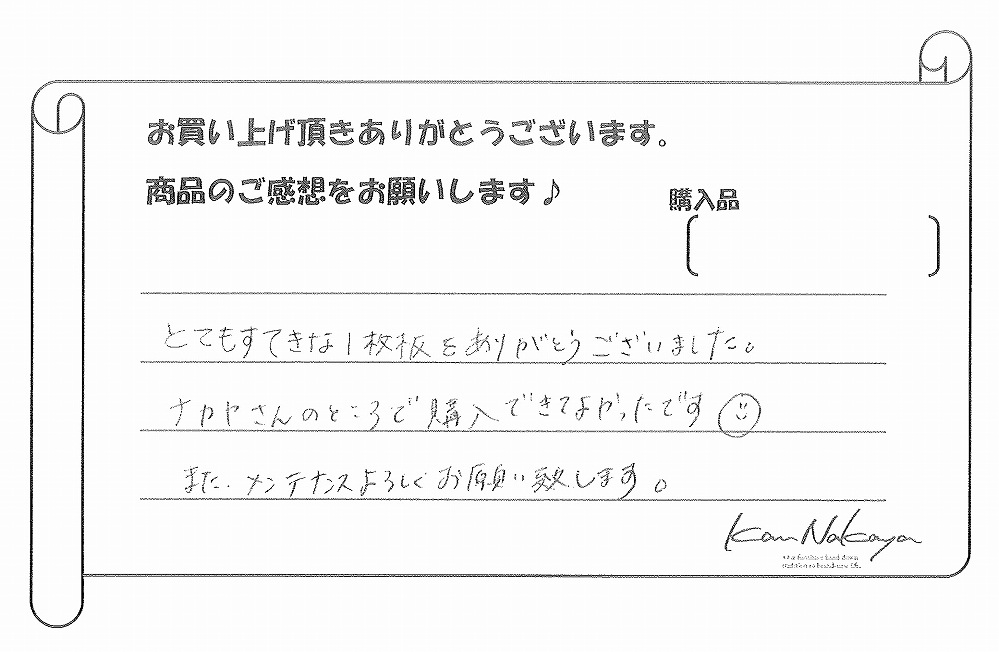 お買い上げ頂きありがとうございます。
商品のご感想をお願いします♪
購入品
とてもすてきな1枚板をありがとうございました。
ナカヤさんのところで購入できてよかったです
また、メンテナンスよろしくお願い致します。
Kan Nakaya